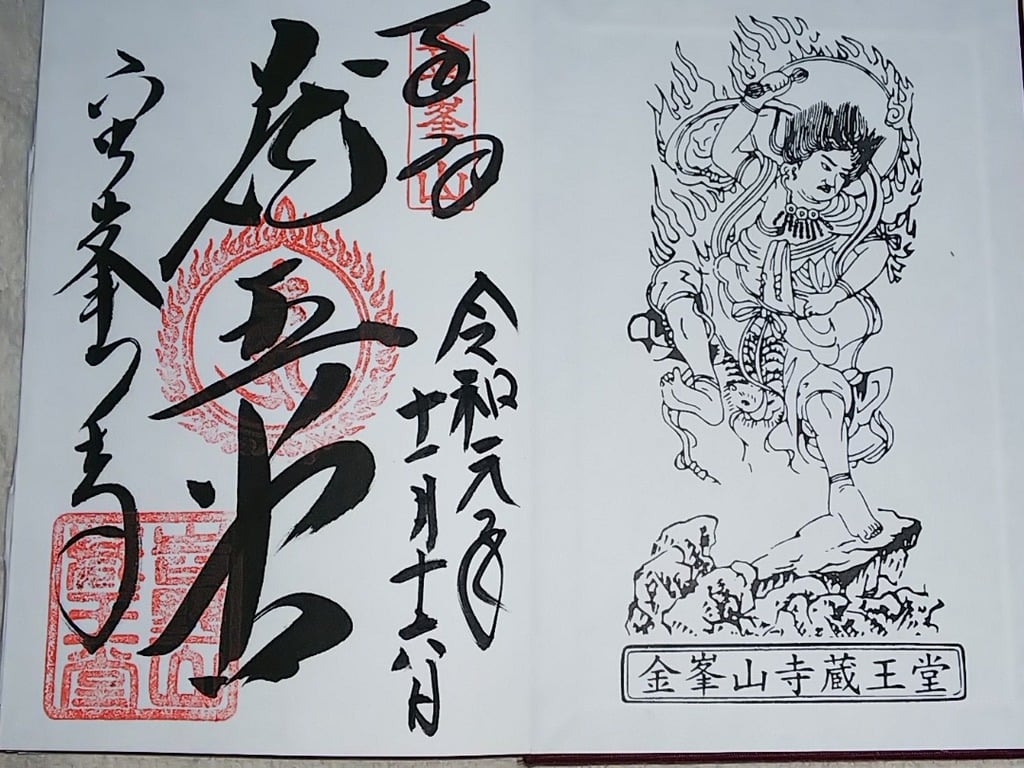 奉拝
令和元年
十一月十六日
蔵王堂
金峯山寺
吉野山
蔵王堂
金峯山寺蔵王堂